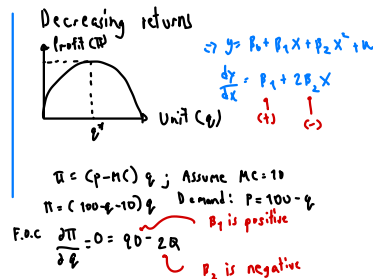 Decreasing returns
Profit (π)
Unit (q)
q*
⇒ y = β₀ + β₁X + β₂X² + u
dy/dx = β₁ + 2β₂X
(+) (-)
π = (P-MC) q ; Assume MC = 10
π = (100-q-10) q Demand: P = 100 - q
β₁ is positive
F.O.C ∂π/∂q = 0 = 90 - 2q
β₂ is negative